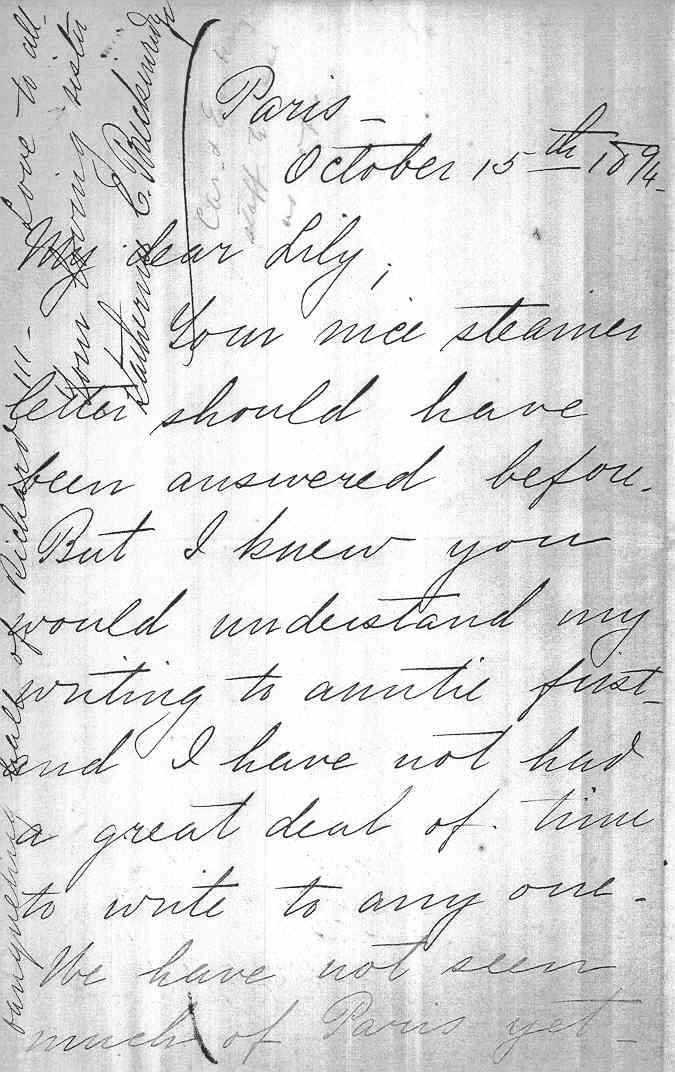 Paris –
October 15th 1894.
My dear Lily,
Your nice steamer
letter should have
been answered before.
But I knew you
would understand my
writing to auntie first –
and I have not had
a great deal of time
to write to any one –
We have not seen
much of Paris yet –
banqueting hall of Richard III –
Love to all –
Your loving sister
Katherine C. Breckinridge